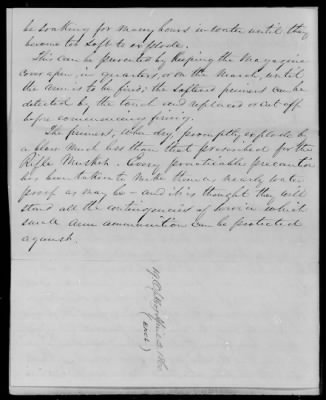 be soaking for many hours in water until they
become too soft to explode.
This can be prevented by keeping the magazine
cover open in quarters, or on the march, until
the arm is to be fired; the softened primers can be
detected by the touch and replaced or cut off
before commencing firing.
The primers, when dry, promptly explode by
a blow much less than that prescribed for the
Rifle Musket. Every practicable precaution
has been taken to make them as nearly water
proof as may be – and it is thought they will
stand all the contingencies of service which
small arm ammunition can be protected
against.
(encl.)